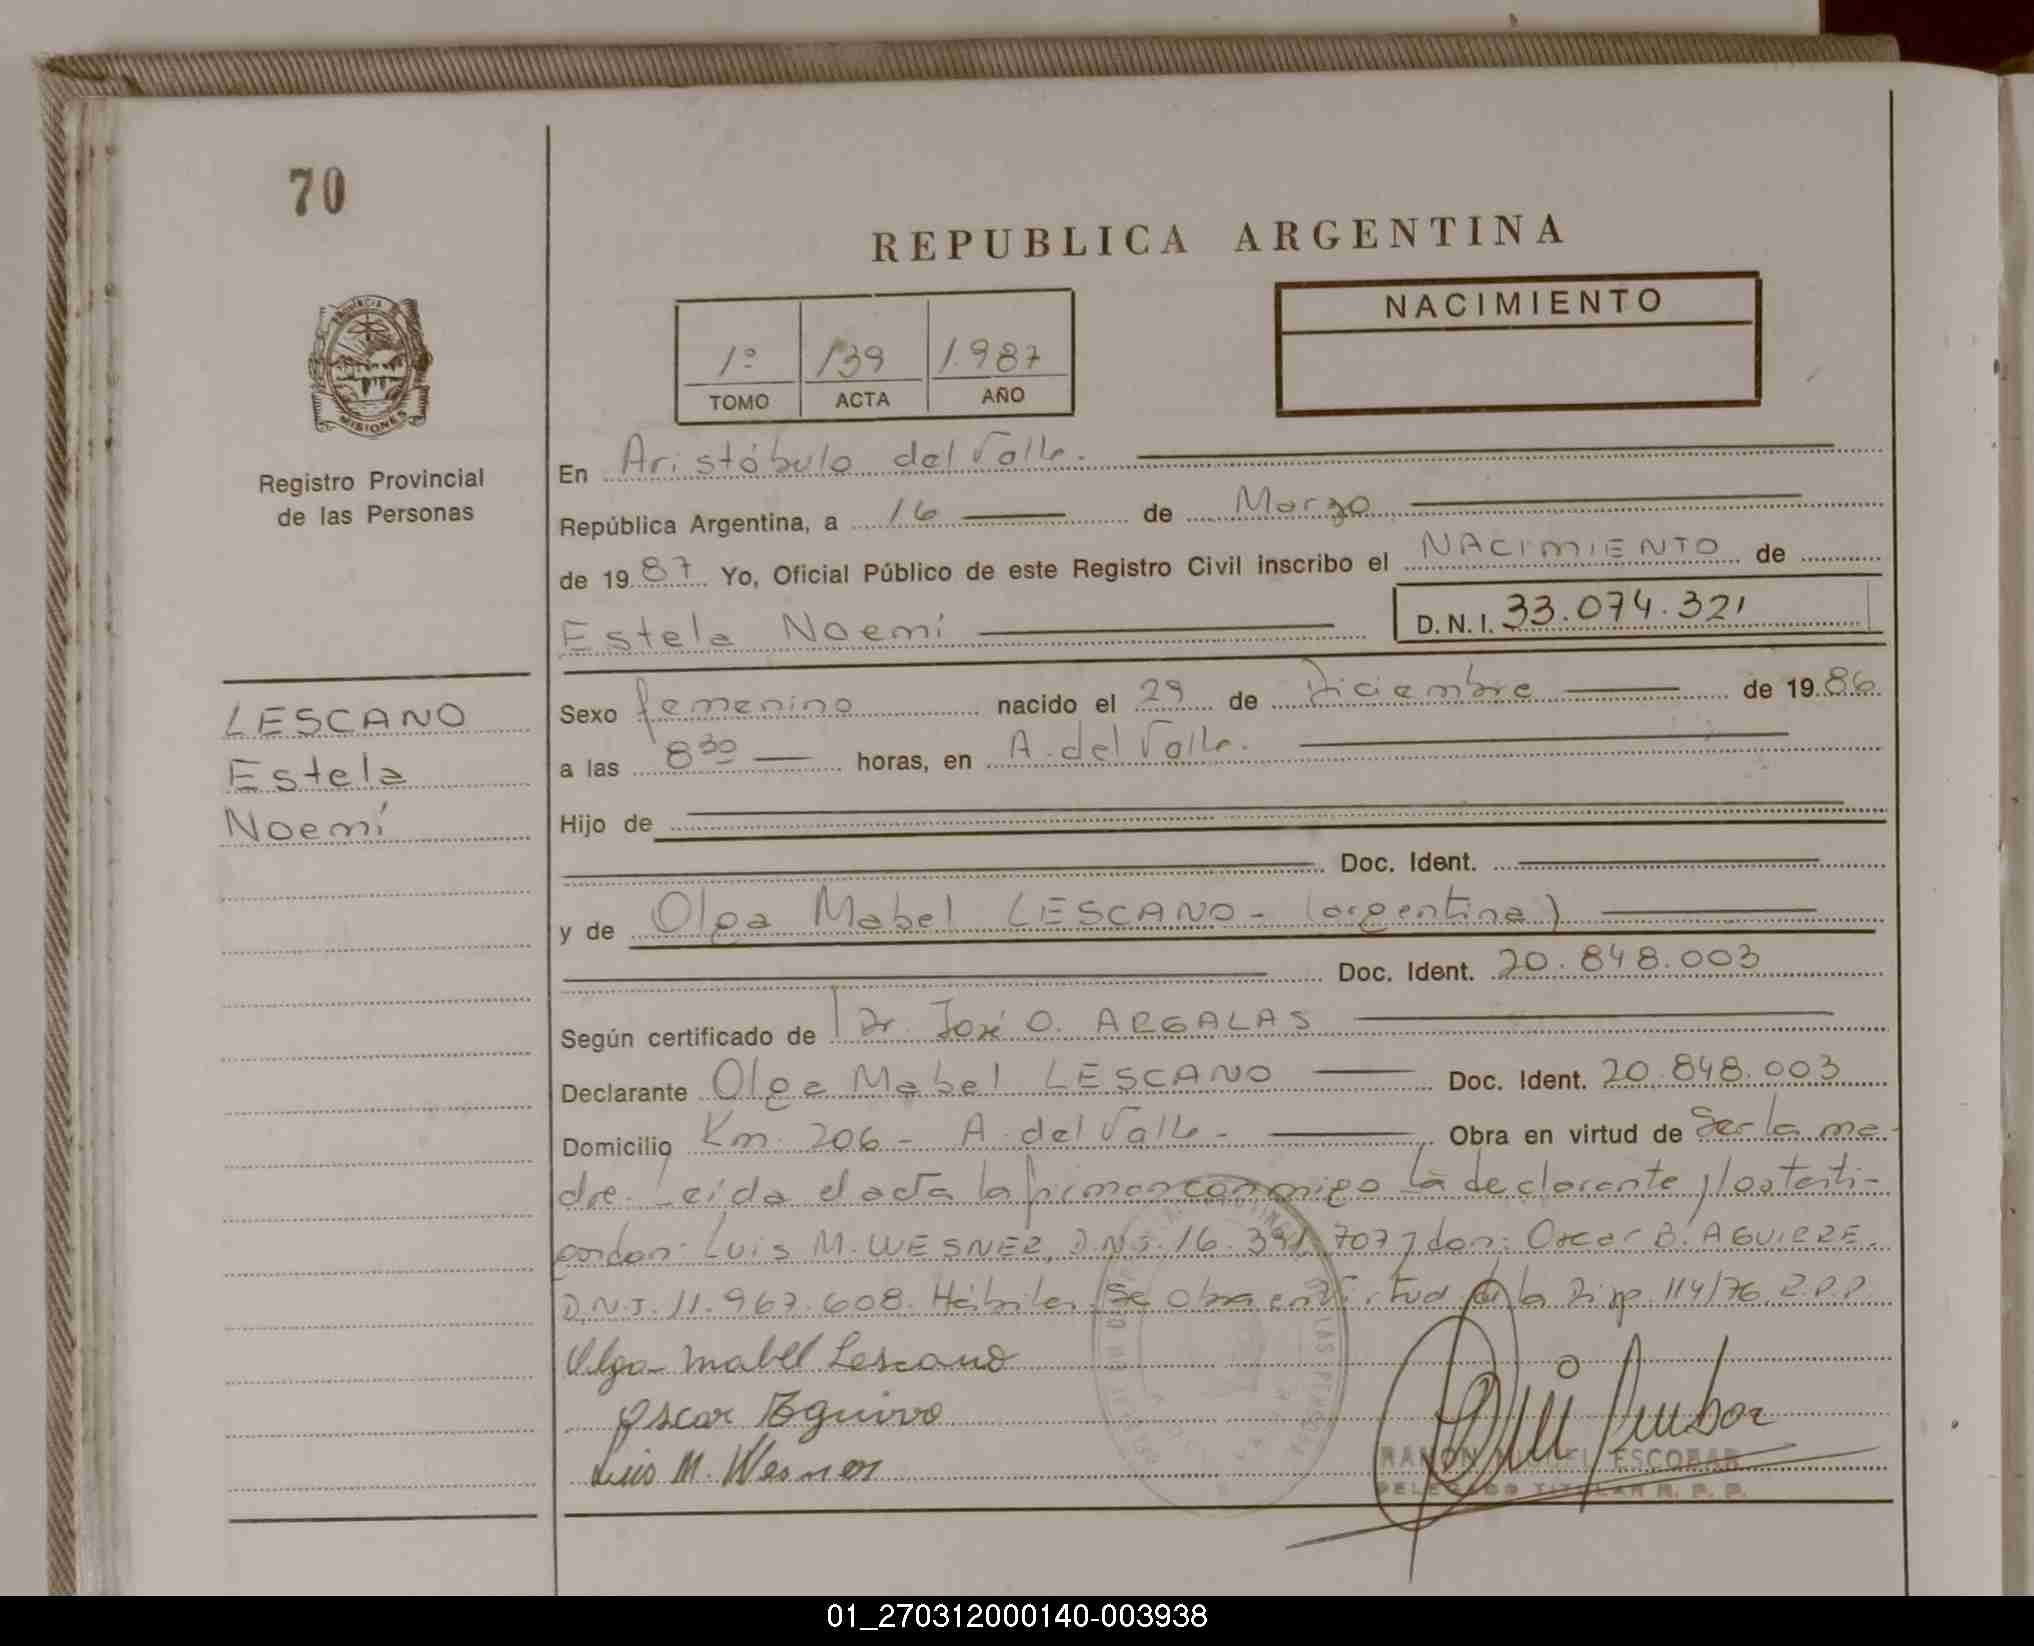 70
REPUBLICA ARGENTINA
NACIMIENTO
1º 139 1.987
TOMO ACTA AÑO
PROVINCIA
MISIONES
Registro Provincial
de las Personas
En Aristóbulo del Valle.
República Argentina, a 16 de Marzo
de 1987 Yo, Oficial Público de este Registro Civil inscribo el NACIMIENTO de
Estela Noemí D.N.I. 33.074.321
LESCANO
Estela
Noemí
Sexo femenino nacido el 29 de Diciembre de 1986
a las 8 30 horas, en A. del Valle.
Hijo de
Doc. Ident.
y de Olga Mabel LESCANO - (argentina)
Doc. Ident. 20.848.003
Según certificado de Dr. José O. ARGALAS
Declarante Olga Mabel LESCANO Doc. Ident. 20.848.003
Domicilio Km. 206 - A. del Valle - Obra en virtud de Ser la ma-
dre. Leída el acta la firman conmigo la declarante y los testi-
gos don: Luis M. WESNER, D.N.I. 16.391.707 y don: Oscar B. AGUIRRE.
D.N.I. 11.967.608. Hábiles. Se obra en virtud de la Disp. 114/76. R.P.P.
Olga Mabel Lescano
Oscar Aguirre
Luis M. Wesner
RAMON MIGUEL ESCOBAR
DELEGADO TITULAR R. P. P.
01_270312000140-003938